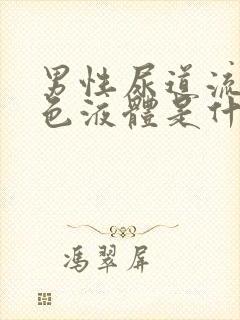 男性尿道流
色液體是什
馮翠屏